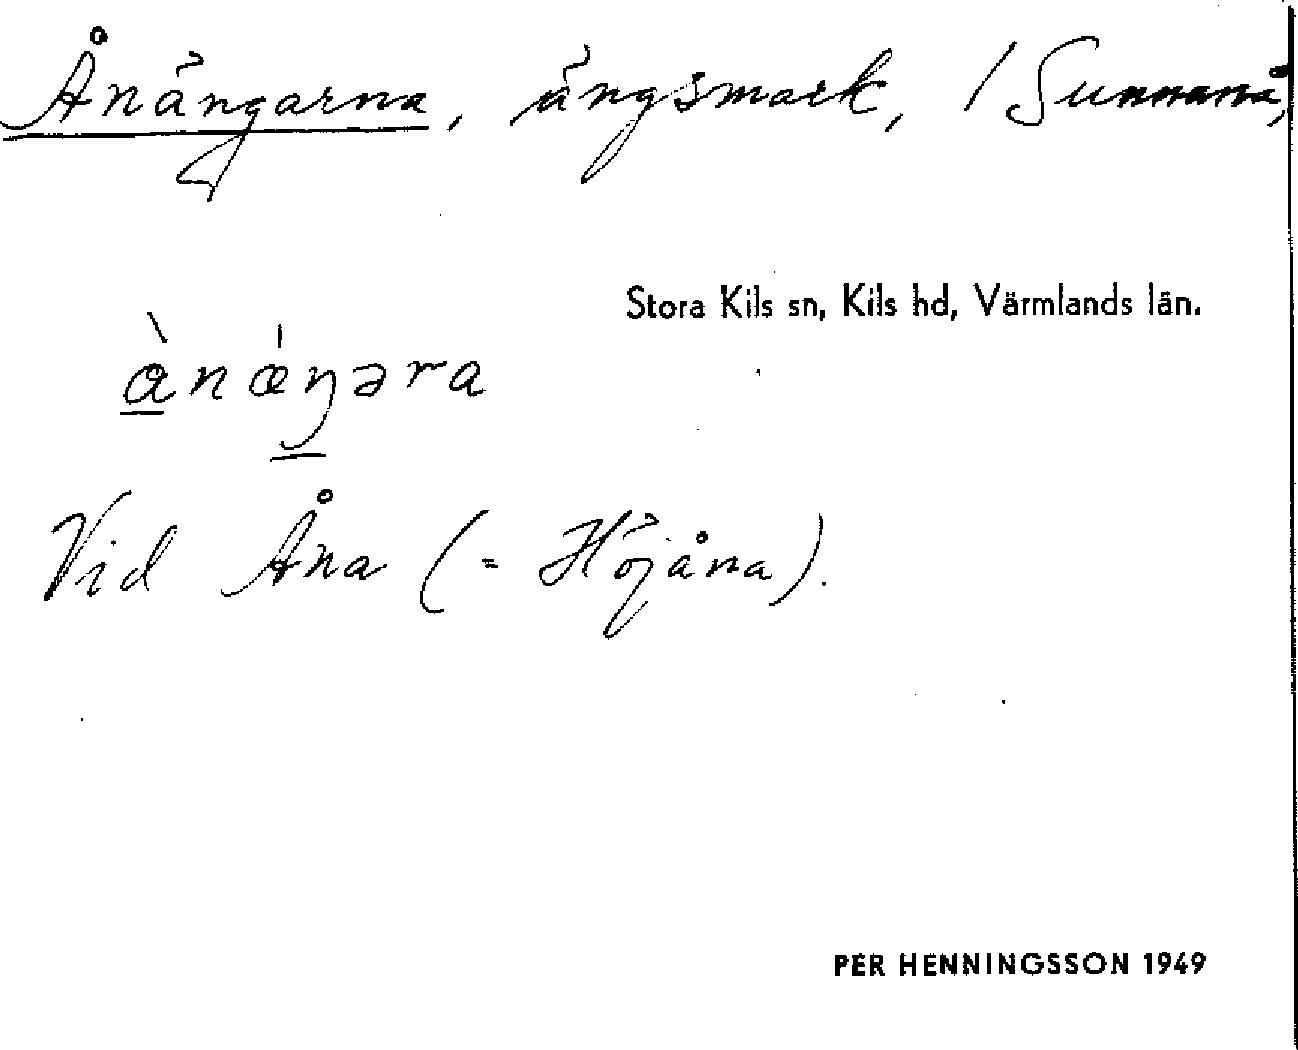 Ånängarna, ängsmark, / Sunnanå,
Stora Kils sn, Kils hd, Värmlands län.
ànæ̀ŋəra
Vid Åna (= Höjåna).
PER HENNINGSSON 1949